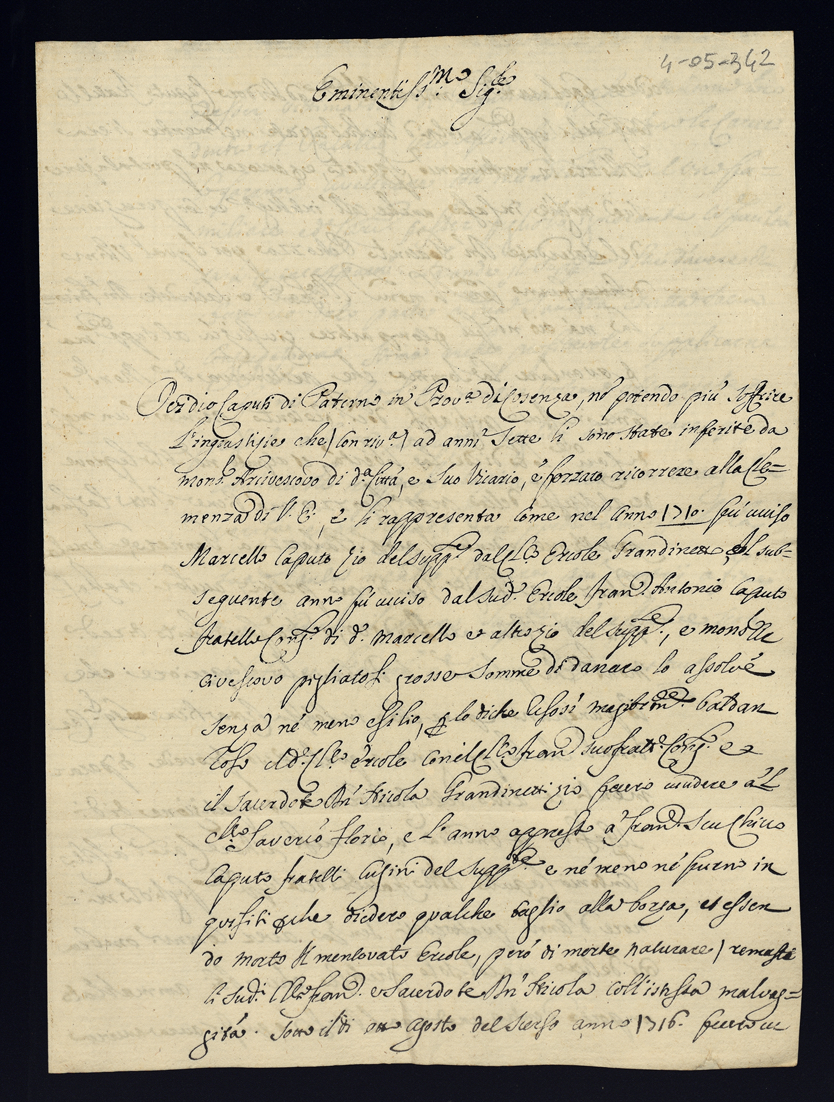 4-05-342
Eminentiss.mo Sig.re
Ovidio Caputi di Paterno in Prov.a di Cosenza, nō potendo più soffrire
l'ingiustizie che (con riv.a) ad anni sette li sono state inferite da
mons.r Arcivescovo di d.a Città, e suo Vicario, è forzato ricorrere alla Cle=
menza di V. E., e li rappresenta come nel anno 1710. fù uciso
Marcello Caputo zio del supp.te dal Cl.o Ercole Grandinetti, Al sub=
seguente anno fù uciso dal sud.o Ercole Fran.o Antonio Caputo
fratello Cons.o di d.o Marcello et altro zio del supp.te, e mons.r Ar
civescovo pigliatosi grosse somme di danaro lo assolvè
senza né meno esilio, lo diche
loso il d.o Cl.o Ercole con il Cl.o Fran.o suo frat.e Cons.o et
il Sacerdote Dn Nicola Grandinetti zio fecero uccidere à l
Cl.o Saverio Florio, e l'anno appresso à Fran.o Chicco
Caputo fratelli Cusini del supp.te e né meno né furno in
quisiti che diedero qualche taglio alla borza, et essen
do morto il mentovato Ercole, però di morte naturare) remasti
li sud.i Cl.o Fran.o e Sacerdote Dn Nicola coll'istessa malvag=
gità. Sotto il di otto Agosto del scorso anno 1716. fecero uc